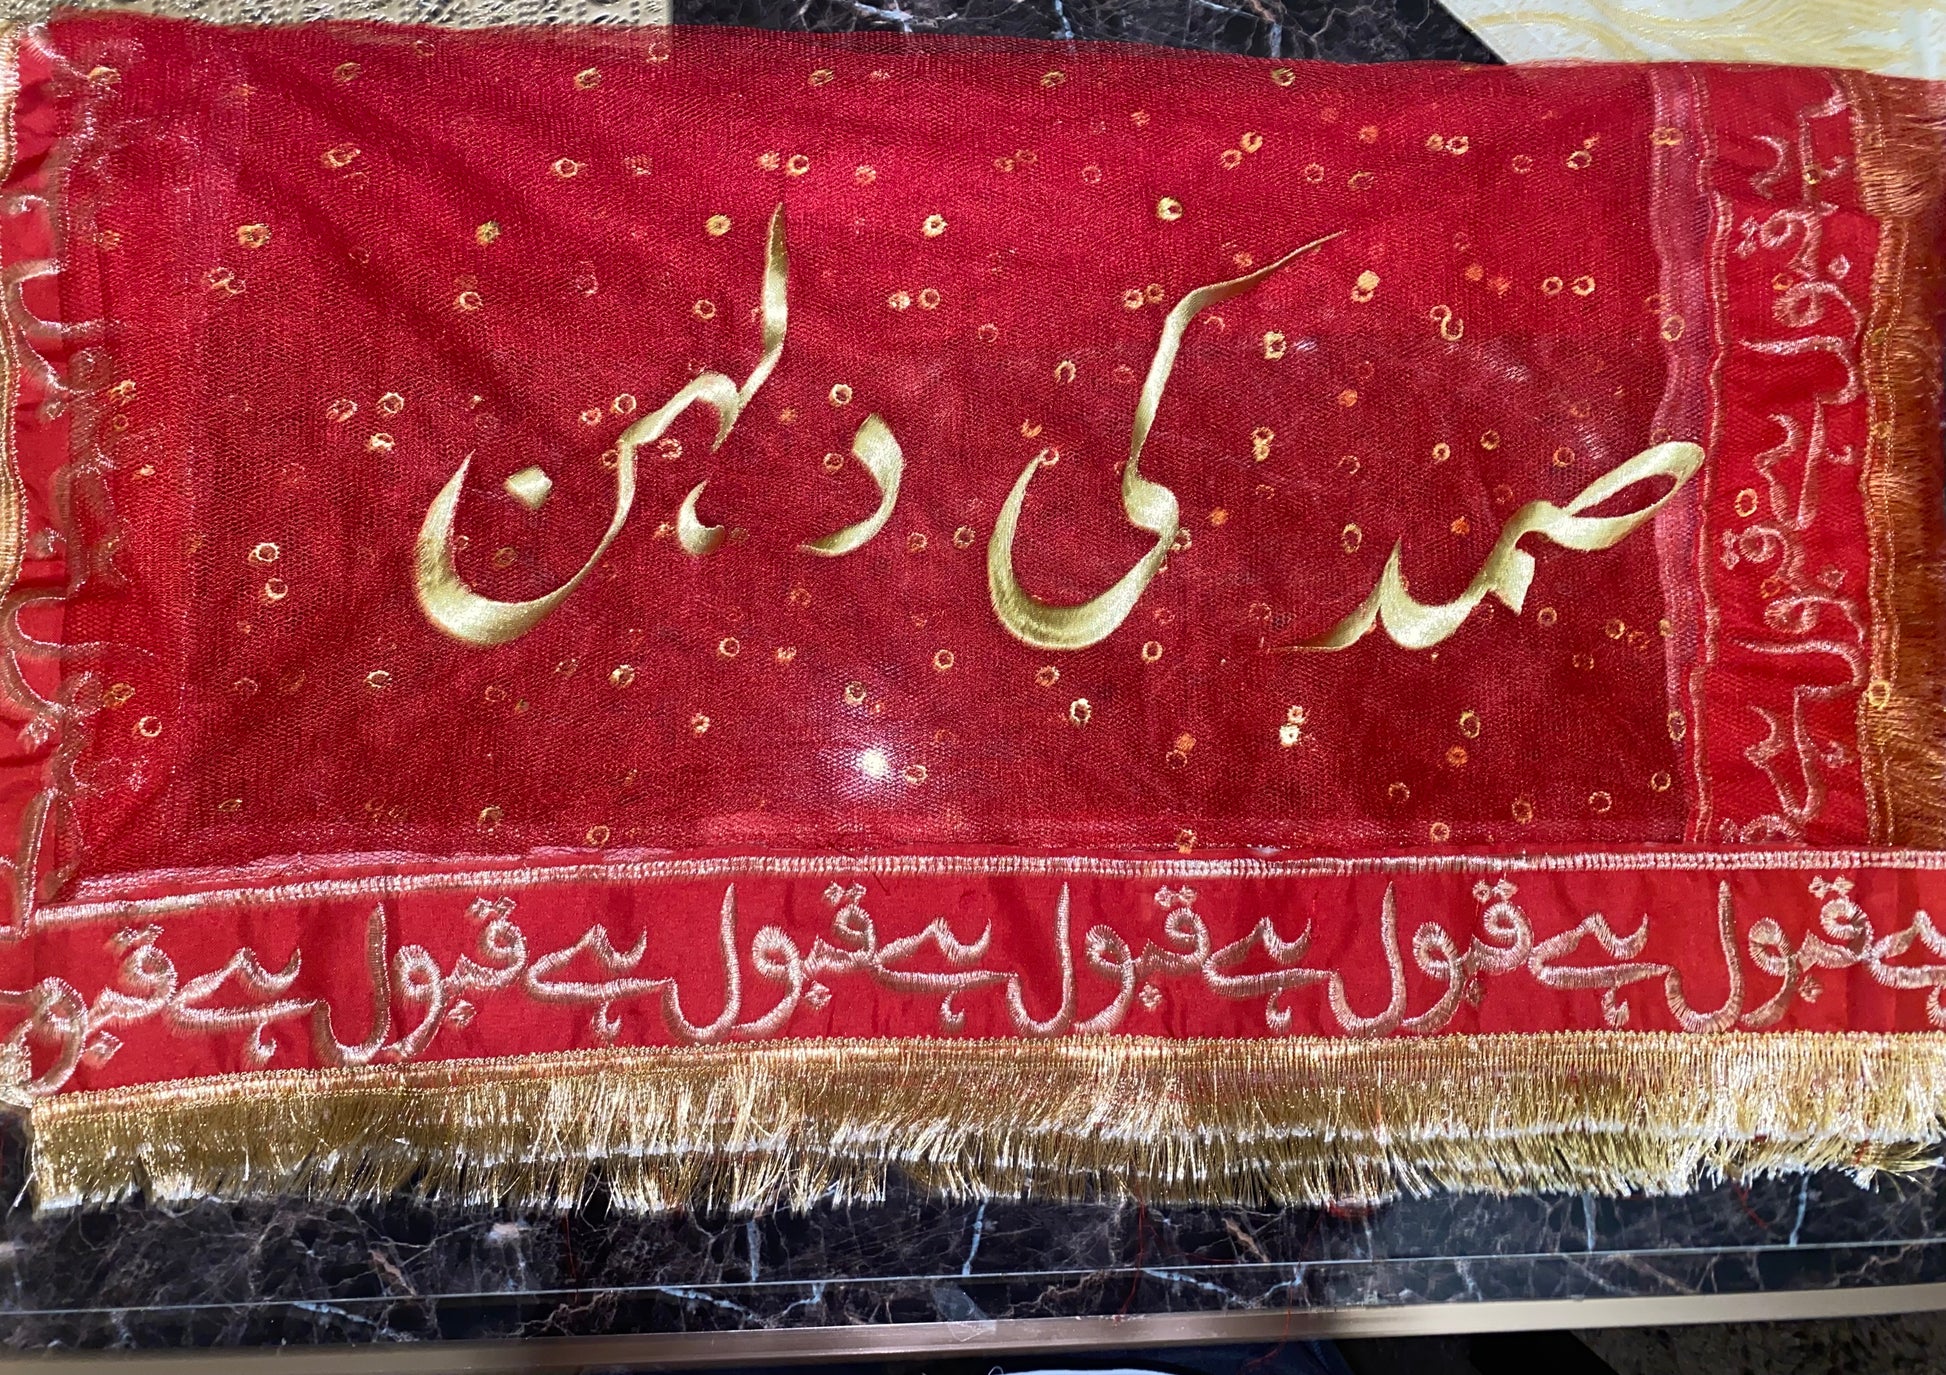 صمد کی دلہن
قبول ہے قبول ہے قبول ہے قبول ہے قبول ہے قبول ہے
قبول ہے قبول ہے